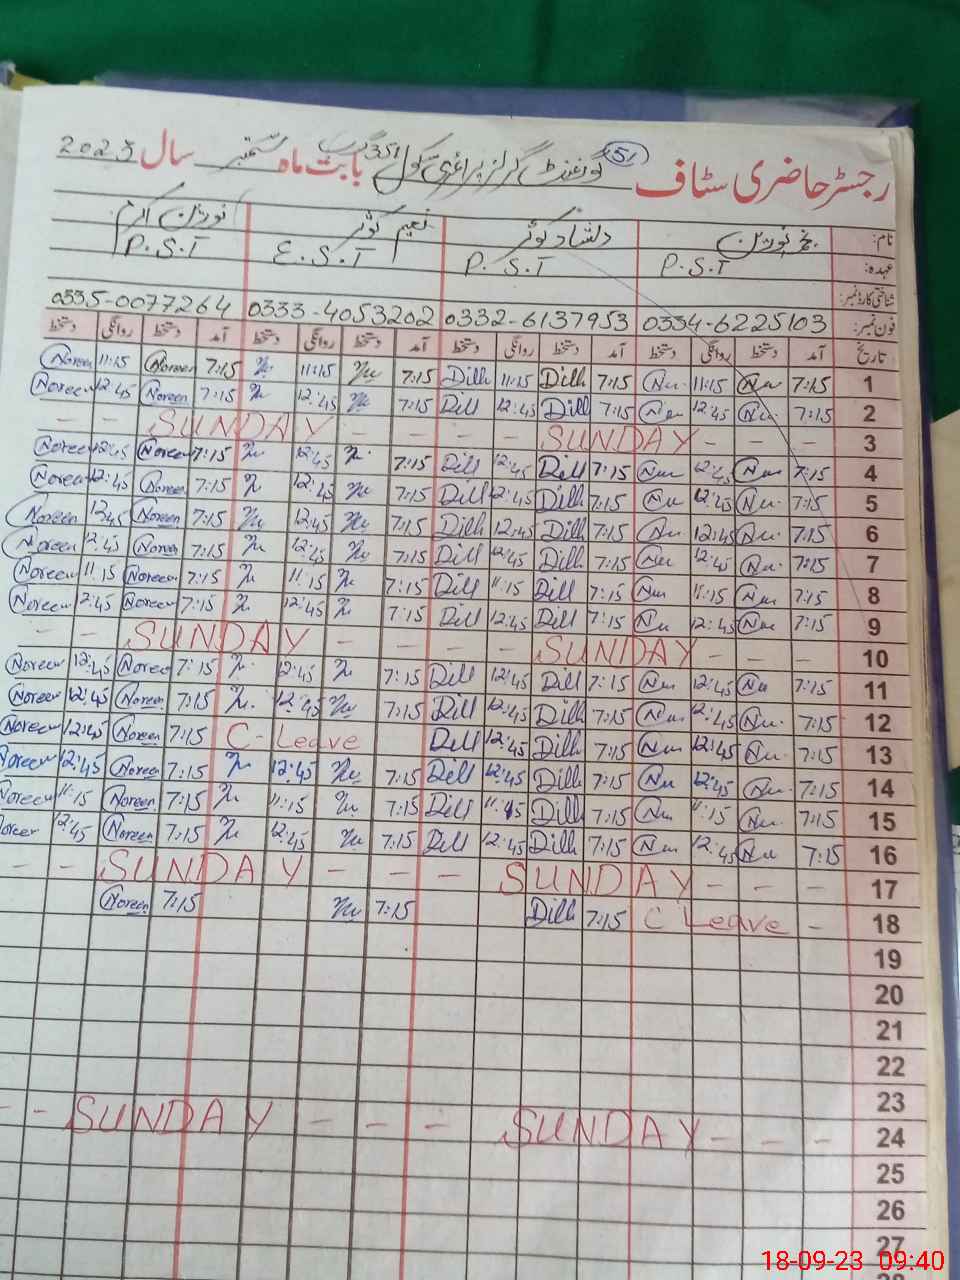 رجسٹر حاضری سٹاف 51 گورنمنٹ گرلز پرائمری سکول 351 گ ب بابت ماہ ستمبر سال 2023
نام: نجمہ نورین دلشاد کوثر نعیم کوثر نورین اکرم
عہدہ: P.S.T P.S.T E.S.T P.S.T
شناختی کارڈ نمبر:
فون نمبر: 0334-6225103 0332-6137953 0333-4053202 0335-0077264
تاریخ آمد دستخط روانگی دستخط آمد دستخط روانگی دستخط آمد دستخط روانگی دستخط آمد دستخط روانگی دستخط
Noreen 11:15 Noreen 7:15 11:15 7:15 Dill 11:15 Dill 7:15 11:15 7:15 1
Noreen 12:45 Noreen 7:15 12:45 7:15 Dill 12:45 Dill 7:15 12:45 7:15 2
- - SUNDAY - - - SUNDAY - - - 3
Noreen 12:45 Noreen 7:15 12:45 7:15 Dill 12:45 Dill 7:15 12:45 7:15 4
Noreen 12:45 Noreen 7:15 12:45 7:15 Dill 12:45 Dill 7:15 12:45 7:15 5
Noreen 12:45 Noreen 7:15 12:45 7:15 Dill 12:45 Dill 7:15 12:45 7:15 6
Noreen 12:45 Noreen 7:15 12:45 7:15 Dill 12:45 Dill 7:15 12:45 7:15 7
Noreen 11:15 Noreen 7:15 11:15 7:15 Dill 11:15 Dill 7:15 11:15 7:15 8
Noreen 12:45 Noreen 7:15 12:45 7:15 Dill 12:45 Dill 7:15 12:45 7:15 9
- - SUNDAY - - - SUNDAY - - - 10
Noreen 12:45 Noreen 7:15 12:45 7:15 Dill 12:45 Dill 7:15 12:45 7:15 11
Noreen 12:45 Noreen 7:15 12:45 7:15 Dill 12:45 Dill 7:15 12:45 7:15 12
Noreen 12:45 Noreen 7:15 C-Leave Dill 12:45 Dill 7:15 12:45 7:15 13
Noreen 12:45 Noreen 7:15 12:45 7:15 Dill 12:45 Dill 7:15 12:45 7:15 14
Noreen 11:15 Noreen 7:15 11:15 7:15 Dill 11:15 Dill 7:15 11:15 7:15 15
Noreen 12:45 Noreen 7:15 12:45 7:15 Dill 12:45 Dill 7:15 12:45 7:15 16
- - SUNDAY - - - SUNDAY - - - 17
Noreen 7:15 7:15 Dill 7:15 C Leave - 18
19
20
21
22
23
- - SUNDAY - - - SUNDAY - - - 24
25
26
27
18-09-23 09:40